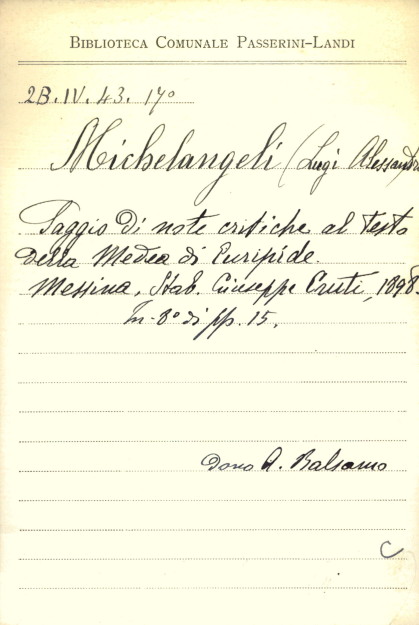 BIBLIOTECA COMUNALE PASSERINI-LANDI
2B.IV.43.17°
Michelangeli (Luigi Alessandro
Saggio di note critiche al testo
della Medea di Euripide
Messina, Stab. Giuseppe Cruti, 1898
In-8° di pp. 15.
Dono A. Balsamo
C